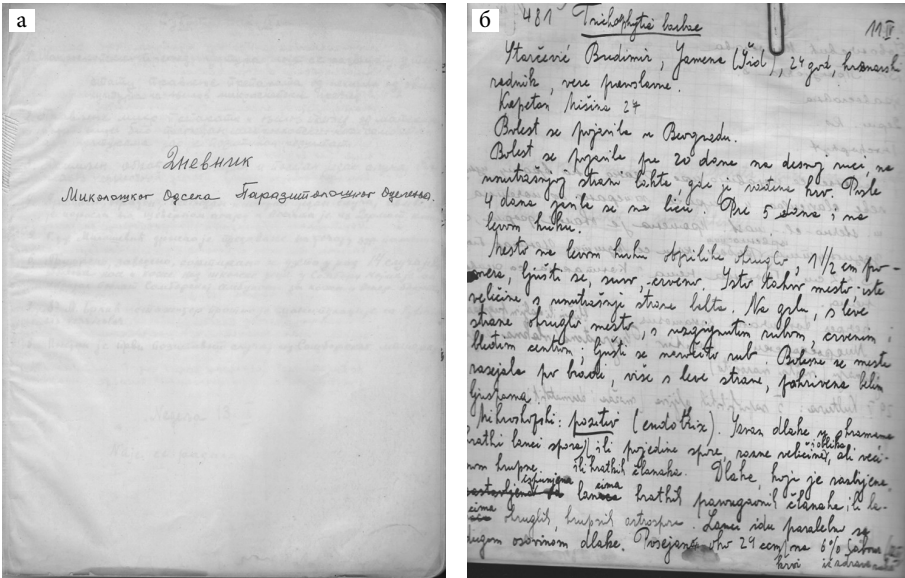 а
Дневник
Миколошког Одсека Паразитолошког Одељења.
б
481 Trichophytia barbae 11 IV.
Starčević Budimir, Jamena (Šid), 24 god, hranarski
radnik, vere pravslavne.
Kapetan Mišina 24
Bolest se pojavila u Beogradu.
Bolest se pojavila pre 20 dana na desnoj ruci, na
unutrašnjoj strani lakta, gde je vađena krv. Posle
4 dana javile se na licu. Pre 5 dana i na
levom kuku.
Mesto na levom kuku otprilike okruglo, 1 1/2 cm pro-
mera, ljušti se, suvo, crveno. Isto takvo mesto iste
veličine s unutrašnje strane lakta. Na grlu, s leve
strane okruglo mesto, s uzdignutim rubom, crvenim,
bledim centrom, ljušti se naročito rub. Bolesne se mesta
rasejala po bradi, više s leve strane, pokrivena belim
ljuspama.
Mikroskopski: pozitiv (endothrix). Izvan dlake u skramama
kratki lanci spora, ili pojedine spore, razne veličine, i oblika, ali veći-
nom krupne. ili kratkih članaka. Dlake, koji je
ispunjena lancima kratkih pravougaonih članaka, ili la-
cima okruglih, krupnih artrospora. Lanci idu paralelno sa
dugom osovinom dlake. Posejano oko 29 com, na 6%
krvi